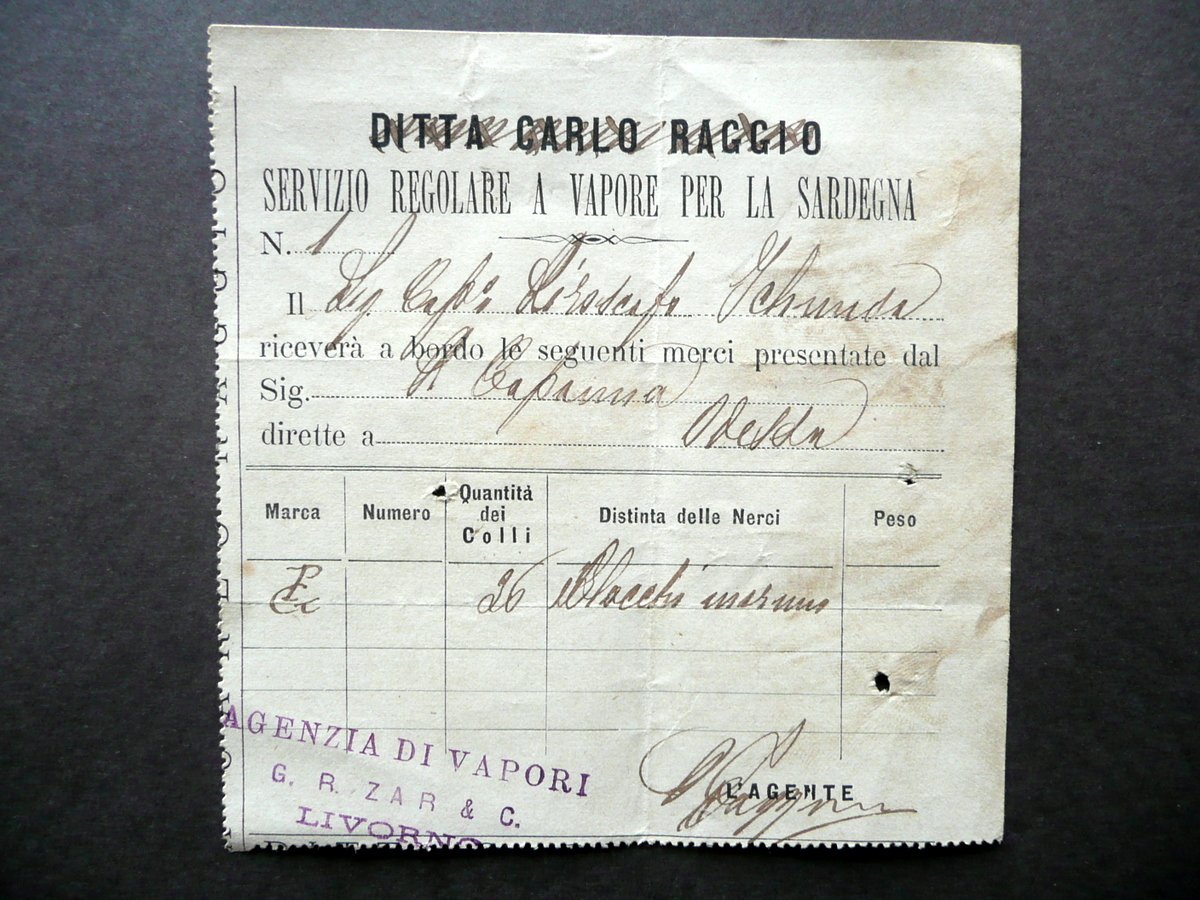 DITTA CARLO RAGGIO
SERVIZIO REGOLARE A VAPORE PER LA SARDEGNA
N. 1
Il Sig. Cap.º Piroscafo
riceverà a bordo le seguenti merci presentate dal
Sig.
dirette a Odessa
Marca Numero Quantità dei Colli Distinta delle Nerci Peso
26 Blocchi marmo
L'AGENTE
AGENZIA DI VAPORI
G. R. ZAR & C.
LIVORNO